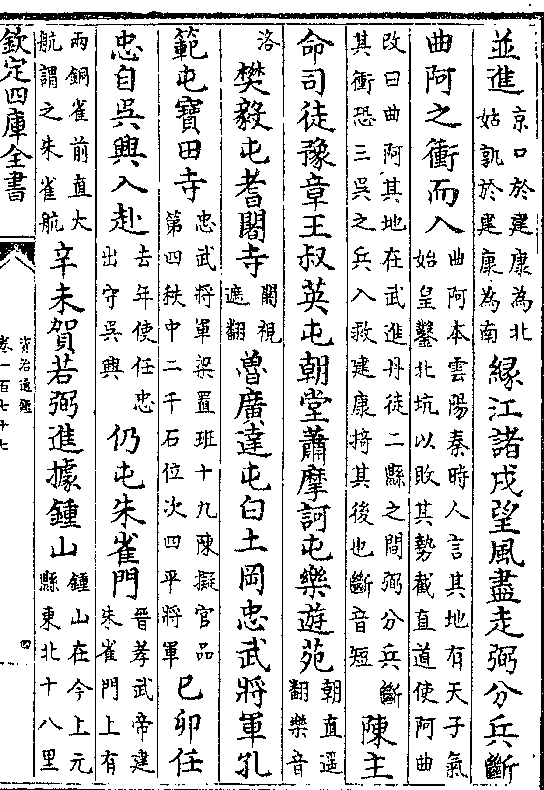 並進京口於建康為北姑孰於建康為南縁江諸戍望風盡走弼分兵斷
曲阿之衝而入曲阿本雲陽秦時人言其地有天子氣始皇鑿北坑以敗其勢截直道使阿曲
改曰曲阿其地在武進丹徒二縣之間弼分兵斷其衝恐三吳之兵入救建康掎其後也斷音短陳主
命司徒豫章王叔英屯朝堂蕭摩訶屯樂遊苑朝直遥翻樂音
洛樊毅屯耆闍寺闍視遮翻魯廣達屯白土岡忠武將軍孔
範屯寶田寺忠武將軍梁置班十九陳擬官品第四秩中二千石位次四平將軍己卯任
忠自吳興入赴去年使任忠出守吳興仍屯朱雀門晉孝武帝建朱雀門上有
兩銅雀前直大航謂之朱雀航辛未賀若弼進據鍾山鍾山在今上元縣東北十八里
欽定四庫全書
資治通鑑
卷一百七十七
四